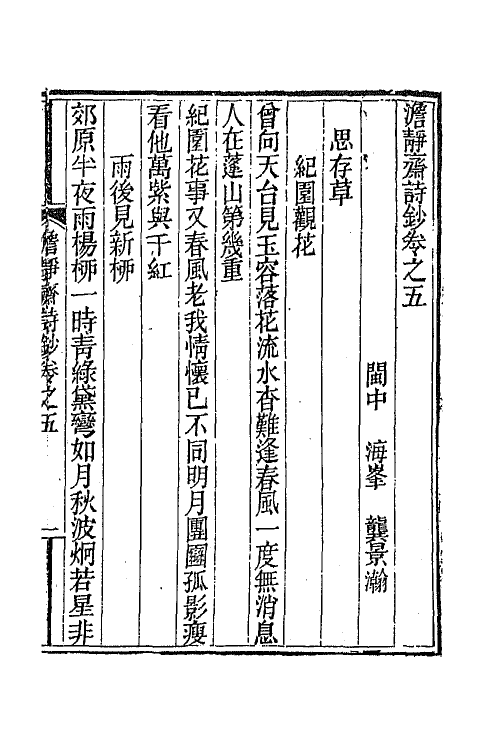 澹靜齋詩鈔卷之五
閩中　海峯　龔景瀚
思存草
紀園觀花
曾向天台見玉容落花流水杳難逢春風一度無消息
人在蓬山第幾重
紀園花事又春風老我情懷已不同明月團圞孤影瘦
看他萬紫與千紅
雨後見新柳
郊原半夜雨楊柳一時靑綠黛彎如月秋波炯若星非
澹靜齋詩鈔卷之五
一